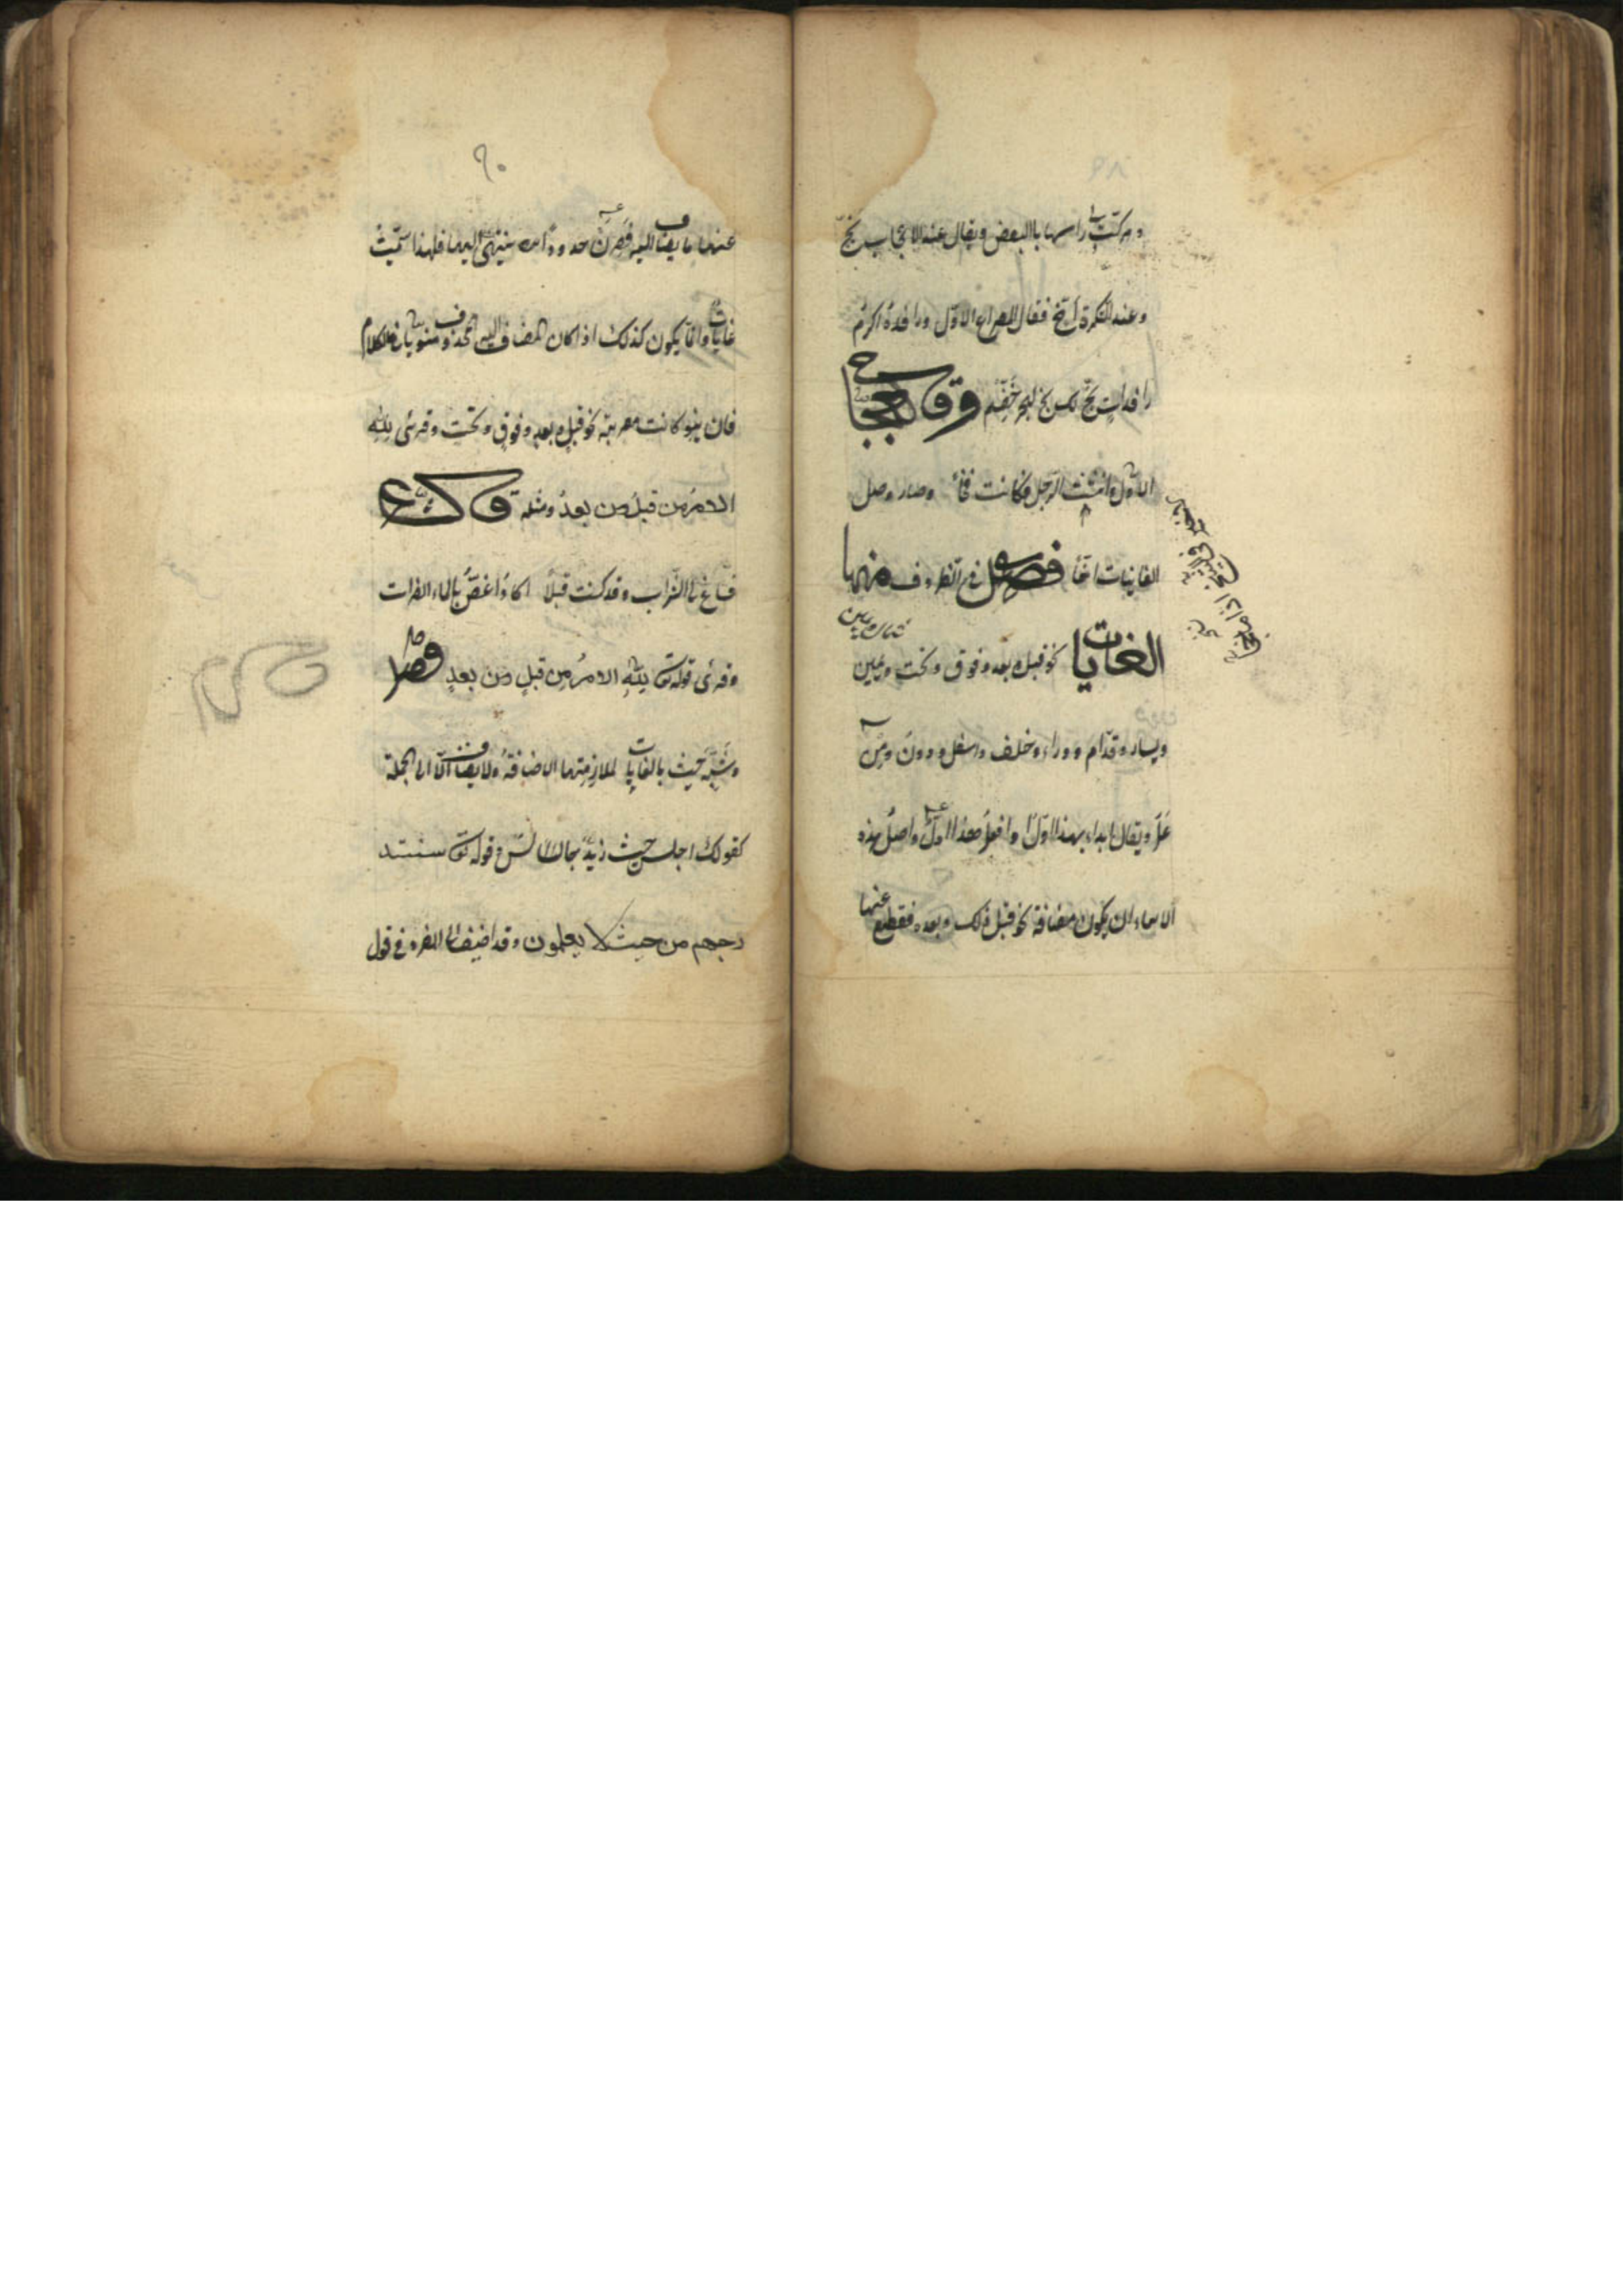 وركبت راسها بالبعض ويقال عند الاعجاب بخّ
وعند التكره أخ فقال المصراع الاول ورافده اكرم
رافدات بخ لك بخ لبحر خضم وقال العجاج
الاول وانثنت الرجل فكانت فخا وصار وصل
الغانيات اخا فصل في الظروف منها
الغايات نحو قبل وبعد وفوق وتحت ويمين
شمال
ويسار وقدام ووراء وخلف واسفل ودون ومن
عل ويقال ابداء بهذا اولا وافعل هذا اول واصل هذه
الاسماء ان يكون مضافة نحو قبل ذلك وبعده فقطع عنها
٩٠
عنها ما يضاف اليه فصرن حدودا ينتهى اليها فلهذا سميت
غايات وانما يكون كذلك اذا كان المضاف اليه المحذوف منويا في الكلام
فان لم ينو كانت معربة نحو قبل وبعد وفوق وتحت وقرئ لله
الامر من قبل ومن بعد ومثله قول الشاعر
فساغ لى الشراب وقد كنت قبلا اكاد اغص بالماء الفرات
وقرئ قوله تعا لله الامر من قبل ومن بعد
وشبه حيث بالغايات لملازمتها الاضافة ولا يضاف الا الى الجملة
كقولك اجلس حيث زيد جالس وقوله تعا سنستد
رجهم من حيث لا يعلمون وقد اضيف الى المفرد في قول